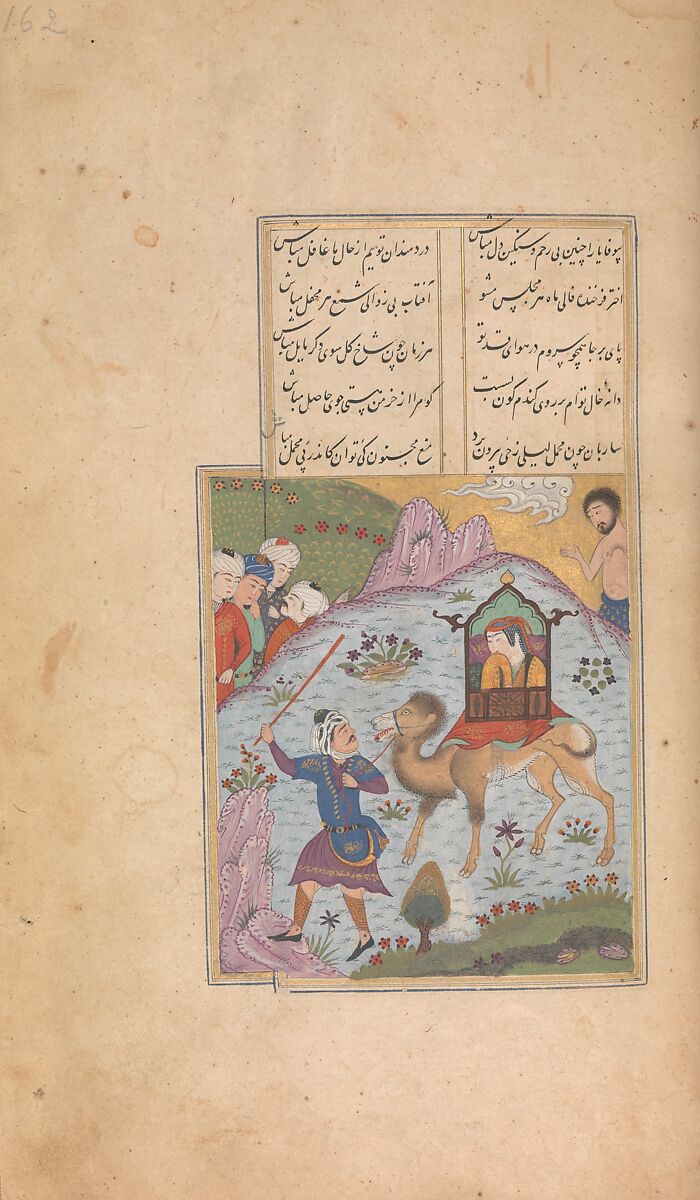 162
بیوفا یارا چنین بی رحم و سنگین دل مباش دردمندان توییم از حال ما غافل مباش
اختر فرخنده فالی ماه هر مجلس مشو آفتاب بی زوالی شمع هر محفل مباش
پای بر جا همچو سروم در هوای قد تو هر زمان چون شاخ گل سوی دگر مایل مباش
دانه خال توام بر روی گندم گون بسست گو مرا از خرمن هستی جوی حاصل مباش
ساربان چون محمل لیلی ز حی بیرون برد منع مجنون کی توان کاندر پی محمل مباش